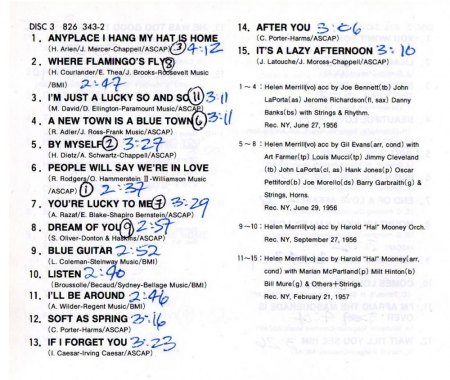 DISC 3 826 343-2
1. ANYPLACE I HANG MY HAT IS HOME
(H. Arlen/J. Mercer-Chappell/ASCAP) ③ 4:12
2. WHERE FLAMINGO'S FLY ⑧
(H. Courlander/E. Thea/J. Brooks-Roosevelt Music
/BMI) 2:47
3. I'M JUST A LUCKY SO AND SO ⑪ 3:11
(M. David/D. Ellington-Paramount Music/ASCAP)
4. A NEW TOWN IS A BLUE TOWN ⑥ 3:11
(R. Adler/J. Ross-Frank Music/ASCAP)
5. BY MYSELF ② 3:27
(H. Dietz/A. Schwartz-Chappell/ASCAP)
6. PEOPLE WILL SAY WE'RE IN LOVE
(R. Rodgers/O. Hammerstein II-Williamson Music
/ASCAP) ① 2:37
7. YOU'RE LUCKY TO ME ⑦ 3:29
(A. Razaf/E. Blake-Shapiro Bernstein/ASCAP)
8. DREAM OF YOU ⑨ 2:57
(S. Oliver-Donton & Haskins/ASCAP)
9. BLUE GUITAR 2:52
(L. Coleman-Steinway Music/BMI)
10. LISTEN 2:40
(Broussolle/Becaud/Sydney-Bellage Music/BMI)
11. I'LL BE AROUND 2:46
(A. Wilder-Regent Music/BMI)
12. SOFT AS SPRING 3:16
(C. Porter-Harms/ASCAP)
13. IF I FORGET YOU 3:23
(I. Caesar-Irving Caesar/ASCAP)
14. AFTER YOU 3:06
(C. Porter-Harms/ASCAP)
15. IT'S A LAZY AFTERNOON 3:10
(J. Latouche/J. Moross-Chappell/ASCAP)
1~4 : Helen Merrill(vo) acc by Joe Bennett(tb) John
LaPorta(as) Jerome Richardson(fl, sax) Danny
Banks(bs) with Strings & Rhythm.
Rec. NY, June 27, 1956
5~8 : Helen Merrill(vo) acc by Gil Evans(arr, cond) with
Art Farmer(tp) Louis Mucci(tp) Jimmy Cleveland
(tb) John LaPorta(cl, as) Hank Jones(p) Oscar
Pettiford(b) Joe Morello(ds) Barry Garbraith(g) &
Strings, Horns.
Rec. NY, June 29, 1956
9~10 : Helen Merrill(vo) acc by Harold "Hal" Mooney Orch.
Rec. NY, September 27, 1956
11~15 : Helen Merrill(vo) acc by Harold "Hal" Mooney(arr,
cond) with Marian McPartland(p) Milt Hinton(b)
Bill Mure(g) & Others+Strings.
Rec. NY, February 21, 1957